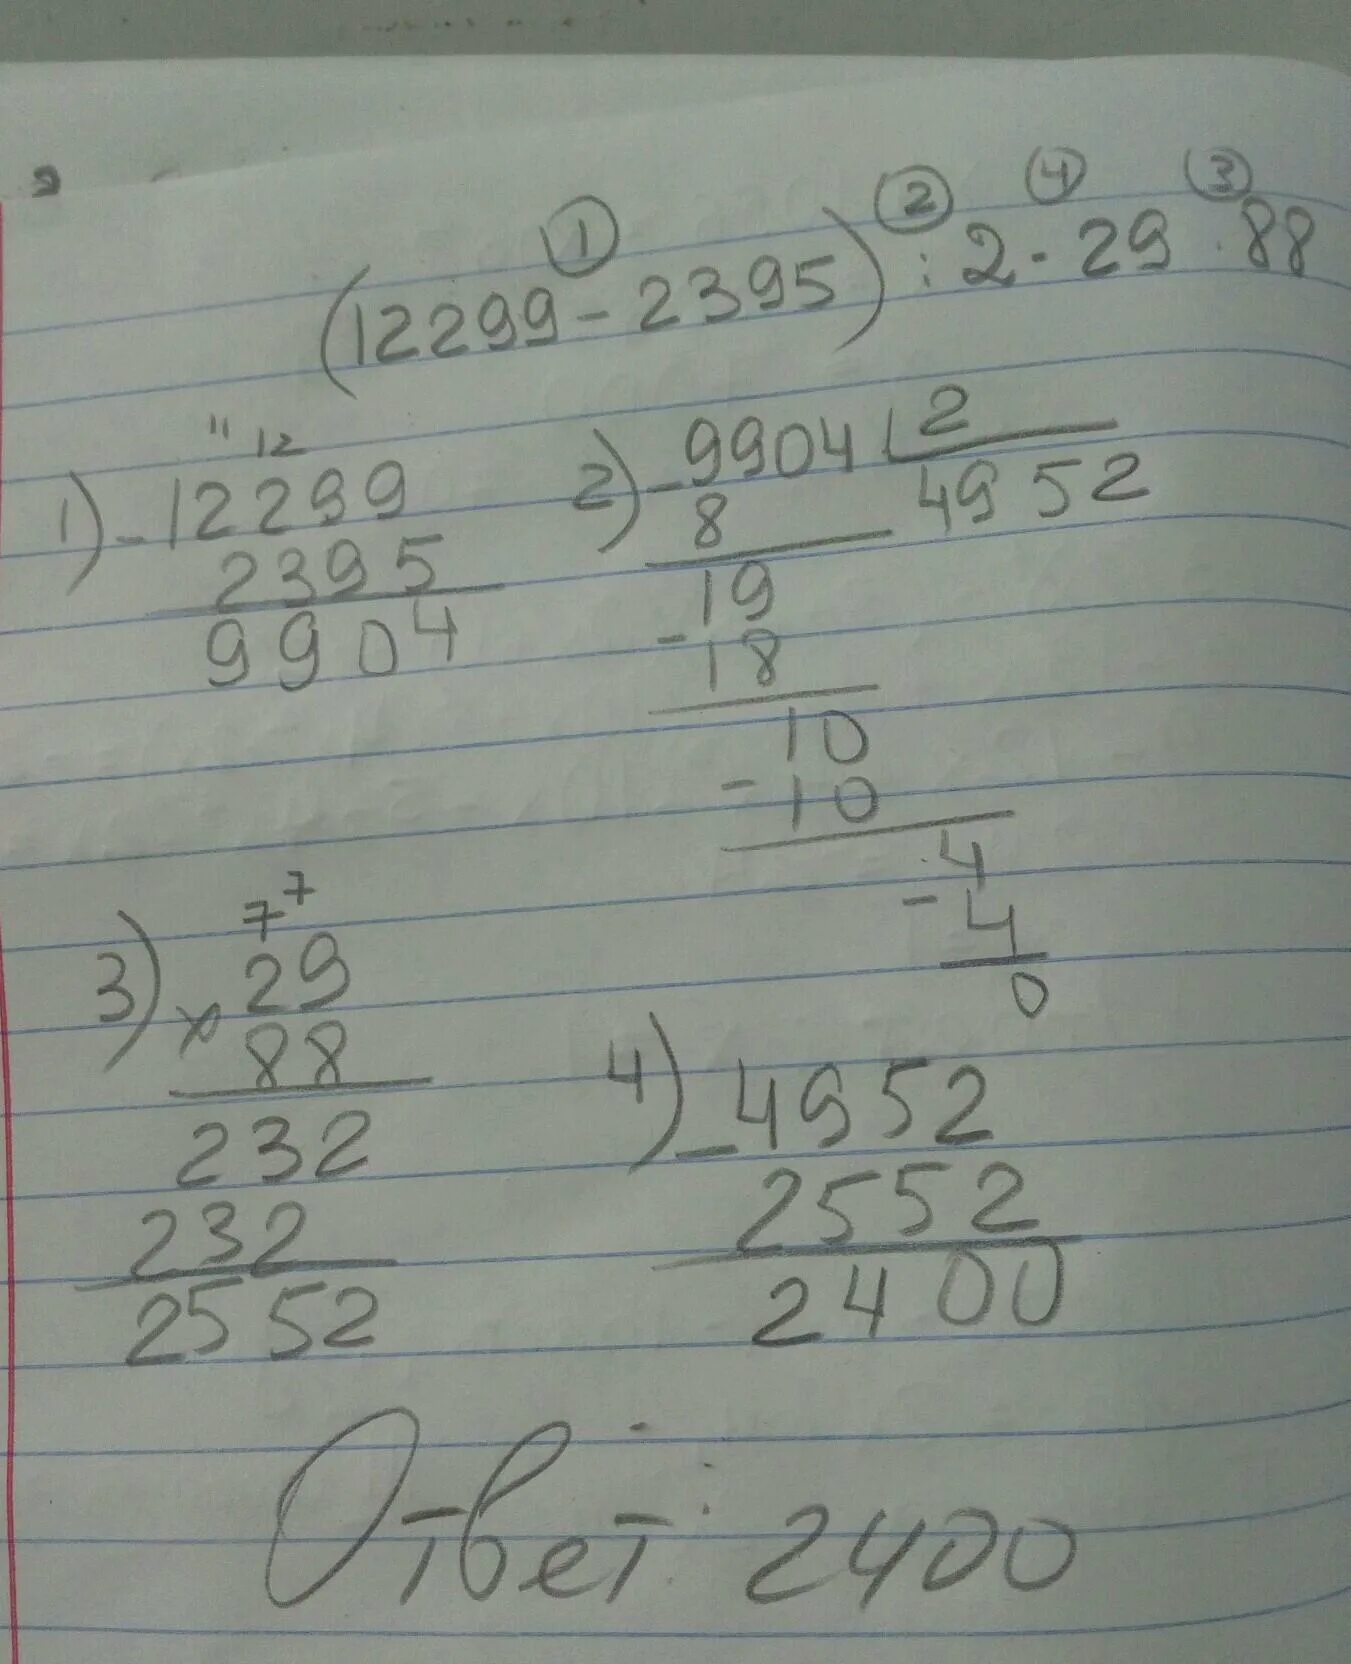 ① ② ④ ③
(12299 - 2395) : 2 - 29 · 88
11 12
1) - 12299
2395
9904
2) - 9904 2
8 4952
19
- 18
10
- 10
4
- 4
0
7 7
3) × 29
88
232
232
2552
4) - 4952
2552
2400
Ответ: 2400